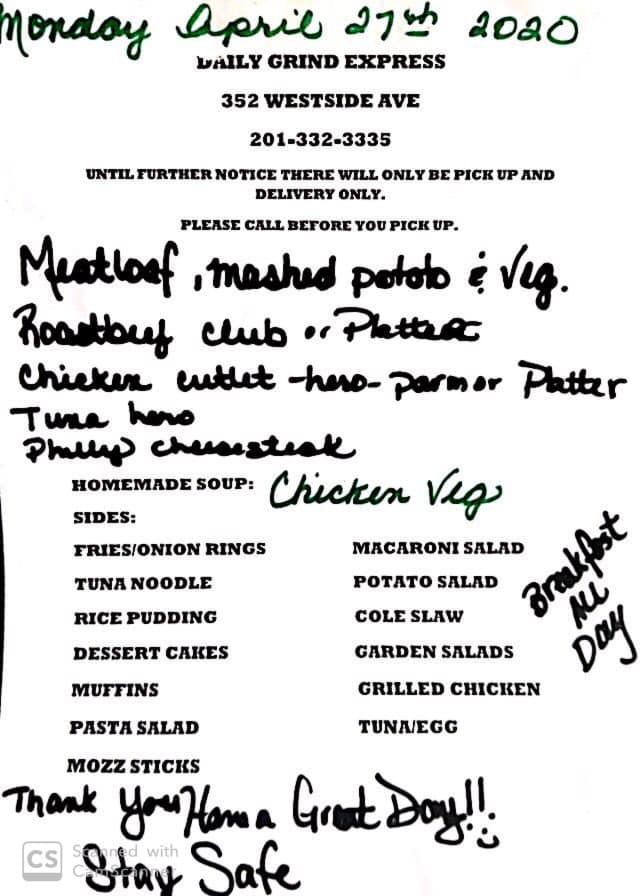 Monday April 27th 2020
DAILY GRIND EXPRESS
352 WESTSIDE AVE
201-332-3335
UNTIL FURTHER NOTICE THERE WILL ONLY BE PICK UP AND
DELIVERY ONLY.
PLEASE CALL BEFORE YOU PICK UP.
Meatloaf, mashed potato & Veg.
Roastbeef club or Platter
Chicken cutlet -hero- parm or Platter
Tuna hero
Philly cheesesteak
HOMEMADE SOUP: Chicken Veg
SIDES:
FRIES/ONION RINGS
TUNA NOODLE
RICE PUDDING
DESSERT CAKES
MUFFINS
PASTA SALAD
MOZZ STICKS
MACARONI SALAD
POTATO SALAD
COLE SLAW
GARDEN SALADS
GRILLED CHICKEN
TUNA/EGG
Breakfast
All
Day
Thank You Have a Great Day!!
Stay Safe
CS Scanned with
CamScanner